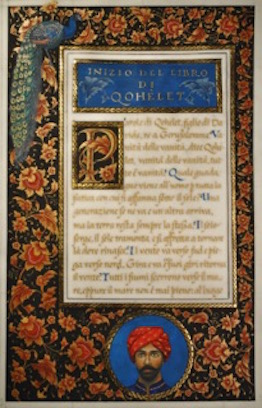 INIZIO DEL LIBRO
DI
QOHELET
Parole di Qohelet, figlio di Da
vide, re a Gerusalemme. Va
nità delle vanità, dice Qohe
let, vanità delle vanità, tut
to è vanità. Quale guada
gno viene all'uomo p tutta la
fatica con cui si affanna sotto il sole? Una
generazione se ne va e un'altra arriva,
ma la terra resta sempre la stessa. Il sole
sorge, il sole tramonta, e si affretta a tornare
là dove rinasce. Il vento va verso sud e pie
ga verso nord. Gira e va e sui suoi giri ritorna
il vento. Tutti i fiumi scorrono verso il ma
re, eppure il mare non è mai pieno: al luogo